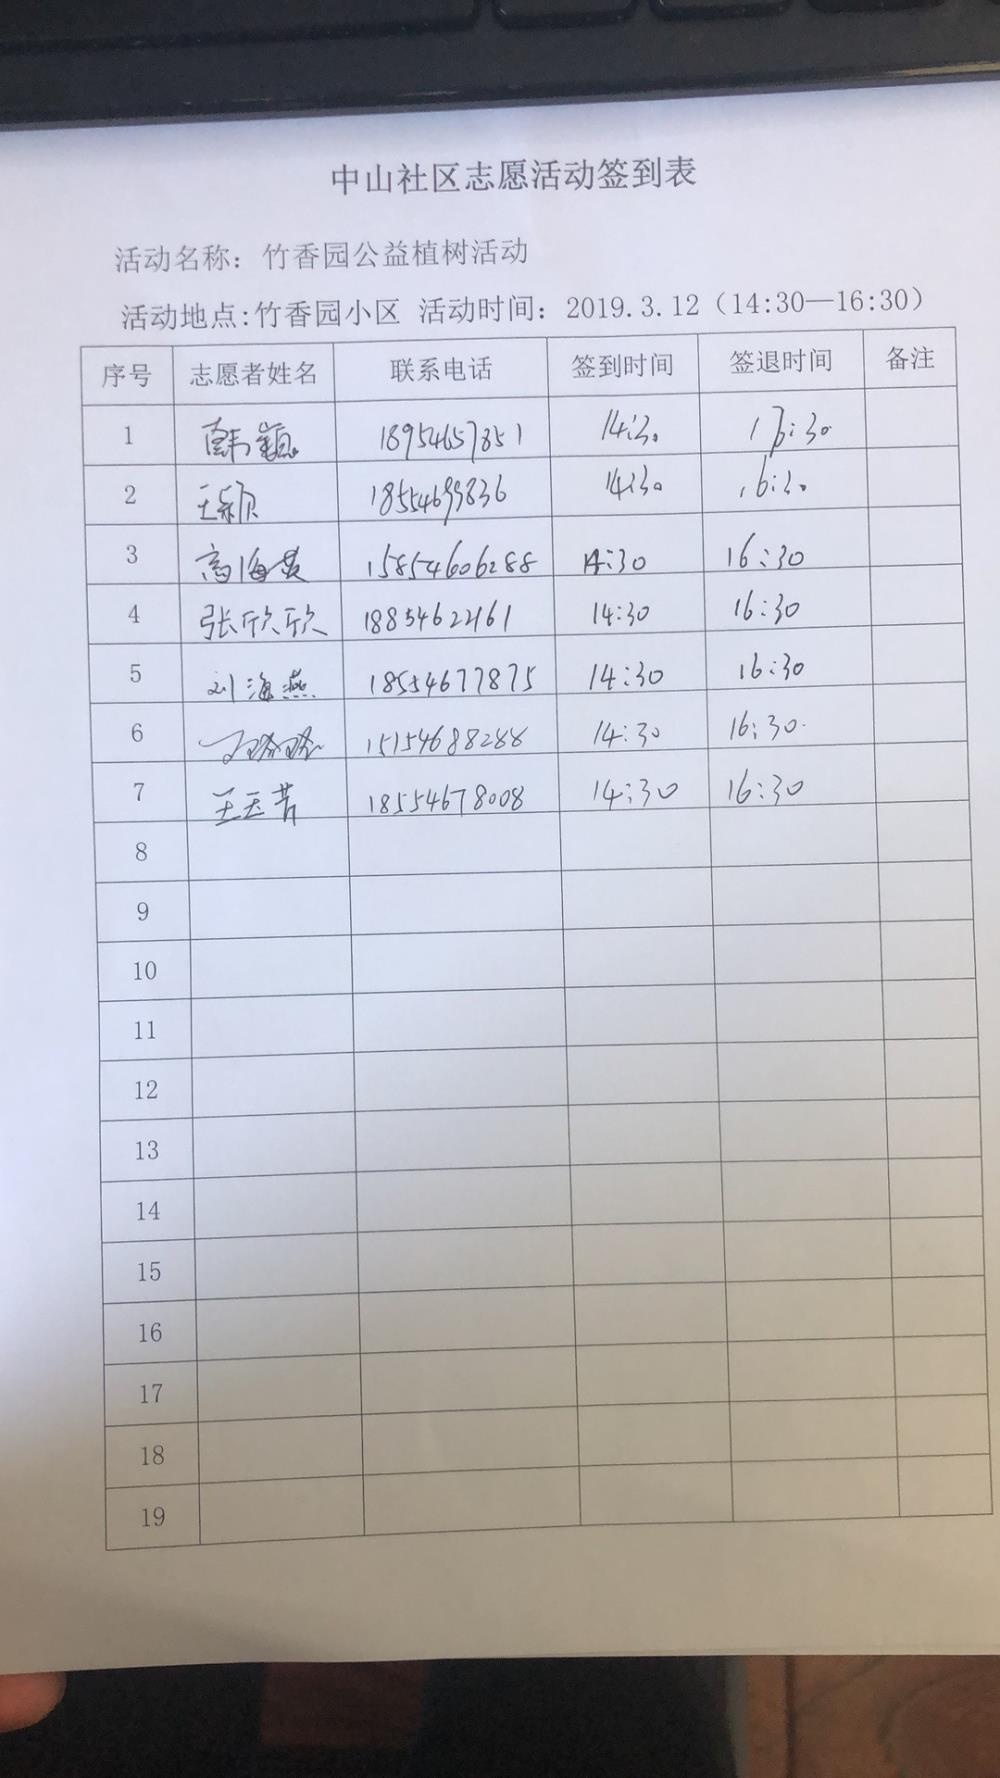 中山社区志愿活动签到表
活动名称：竹香园公益植树活动
活动地点:竹香园小区 活动时间：2019.3.12（14:30—16:30）
序号 志愿者姓名 联系电话 签到时间 签退时间 备注
1 韩颖 18954657851 14:30 16:30
2 王颖 18554699836 14:30 16:30
3 高海英 15854606288 14:30 16:30
4 张欣欣 18854622161 14:30 16:30
5 刘海燕 18554677875 14:30 16:30
6 15154688288 14:30 16:30
7 18554678008 14:30 16:30
8
9
10
11
12
13
14
15
16
17
18
19